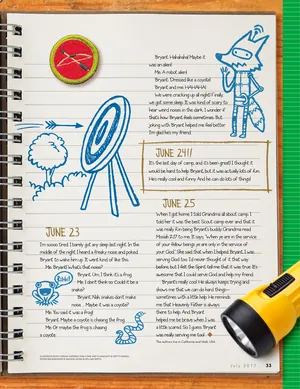 Bryant: Hahahaha! Maybe it
was an alien!
Me: A robot alien!
Bryant: Dressed like a coyote!
Bryant and me: HAHAHA!
We were cracking up all night! Finally
we got some sleep. It was kind of scary to
hear weird noises in the dark. I wonder if
that's how Bryant feels sometimes. But
joking with Bryant helped me feel better.
I'm glad he's my friend.
JUNE 24!!!
It's the last day of camp, and it's been great! I thought it
would be hard to help Bryant, but it was actually lots of fun.
He's really cool and funny. And he can do lots of things!
JUNE 23
I'm soooo tired. I barely got any sleep last night. In the
middle of the night, I heard a freaky noise and poked
Bryant to wake him up. It went kind of like this:
Me: Bryant! What's that noise?
Bryant: Um, I think it's a frog.
Me: I don't think so. Could it be a
snake?
Bryant: Nah, snakes don't make
noise ... Maybe it was a coyote?
Me: You said it was a frog!
Bryant: Maybe a coyote is chasing the frog.
Me: Or maybe the frog is chasing
a coyote.
JUNE 25
When I got home, I told Grandma all about camp. I
told her it was the best Scout camp ever and that it
was really fun being Bryant's buddy. Grandma read
Mosiah 2:17 to me. It says, "when ye are in the service
of your fellow beings ye are only in the service of
your God." She said that when I helped Bryant, I was
serving God too. I'd never thought of it that way
before, but I felt the Spirit tell me that it was true. It's
awesome that I could serve God and help my friend.
Bryant's really cool. He always keeps trying and
shows me that we can do hard things—
sometimes with a little help. He reminds
me that Heavenly Father is always
there to help. And Bryant
helped me be brave when I was
a little scared. So I guess Bryant
was really serving me too!
The authors live in California and Utah, USA.
July 2017 33